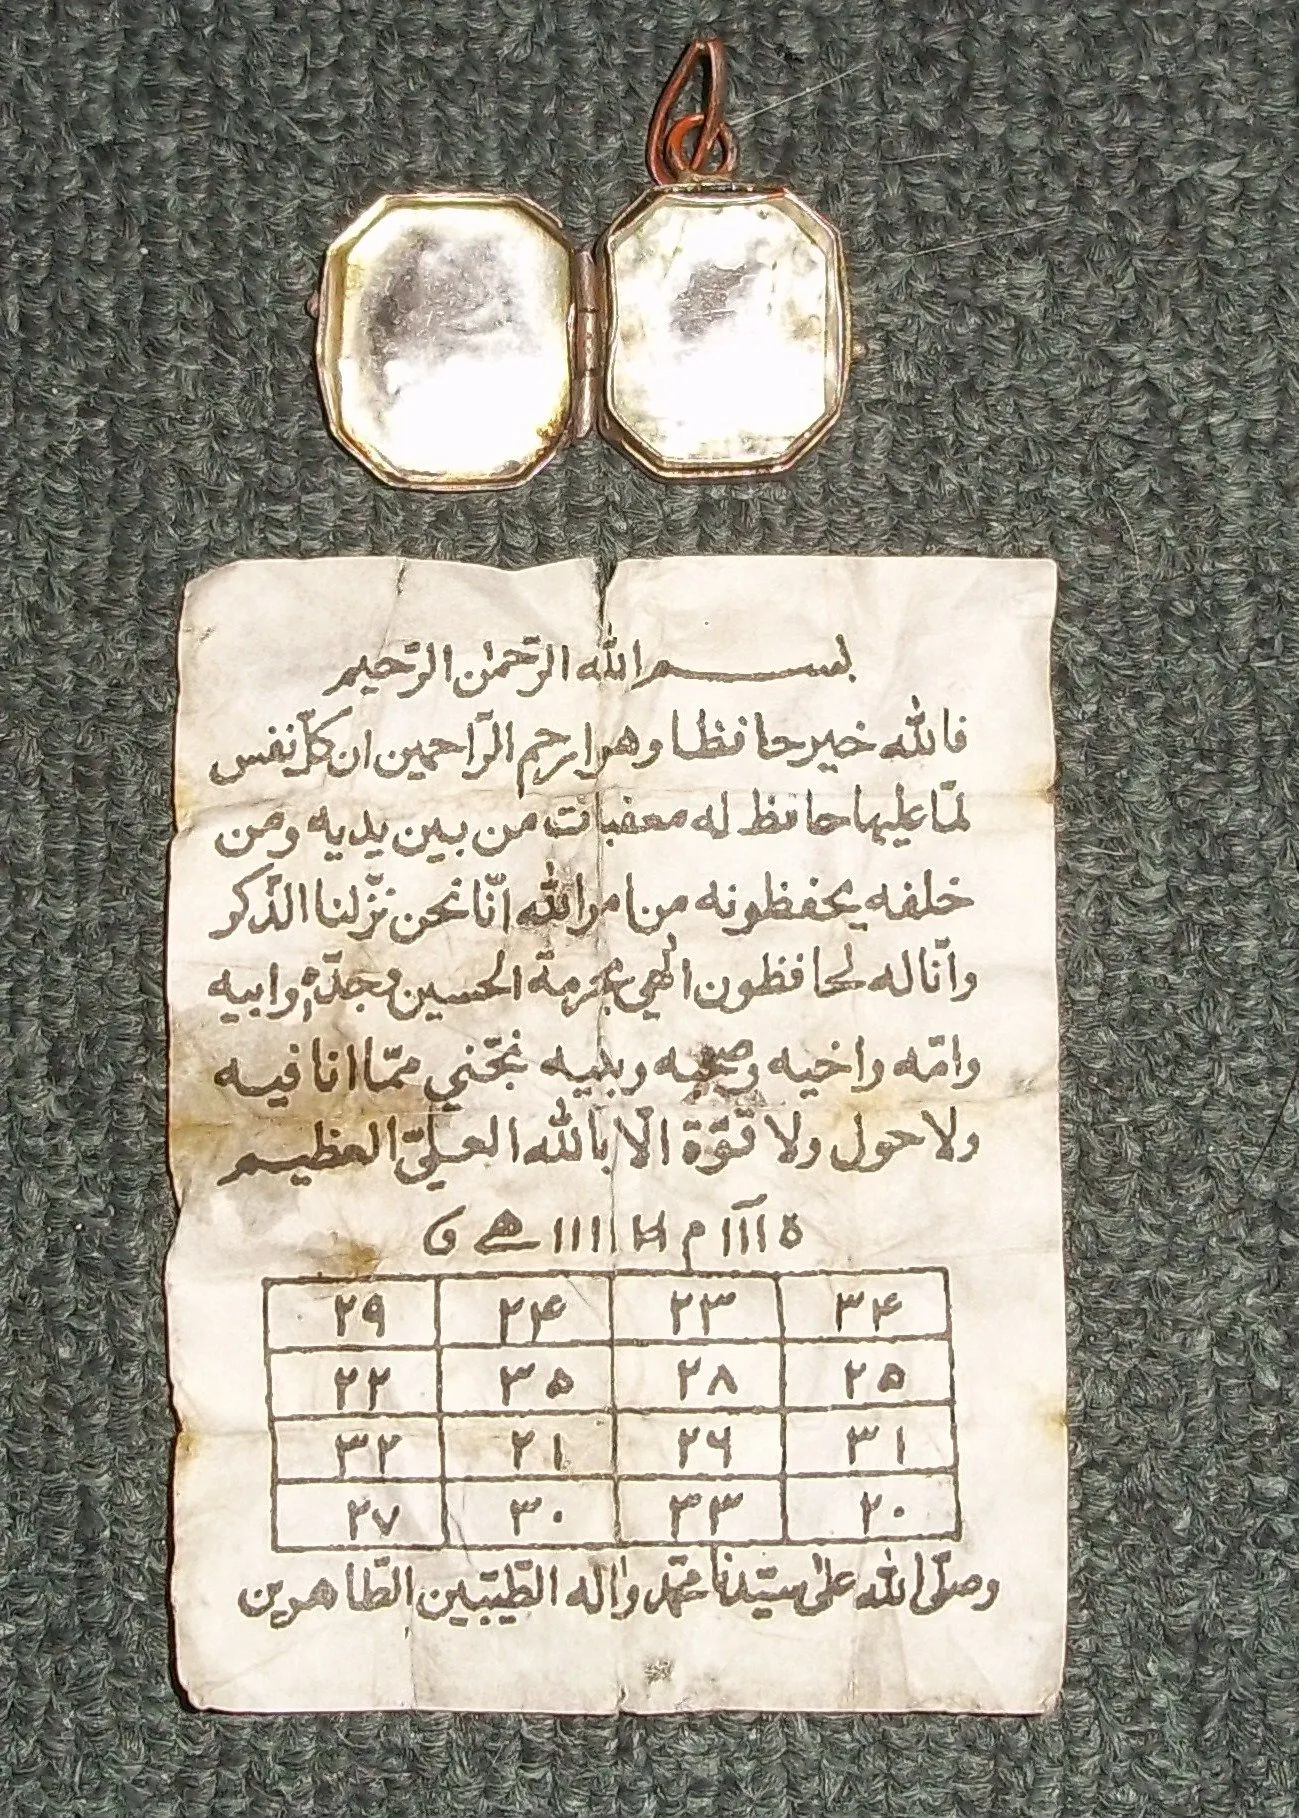 بسم الله الرّحمٰن الرّحيم
فالله خير حافظا وهو ارحم الرّاحمين ان كلّ نفس
لمّا عليها حافظ له معقبات من بين يديه ومن
خلفه يحفظونه من امر الله انّا نحن نزّلنا الذّكر
وانّا له لحافظون الٰهي بحرمة الحسين وجدّه وابيه
وامّه واخيه وبنيه نجّني ممّا انا فيه
ولا حول ولا قوّة الّا بالله العليّ العظيم
۲۹ ۲۴ ۲۳ ۳۴
۲۲ ۳۵ ۲۸ ۲۵
۳۲ ۲۱ ۲۶ ۳۱
۲۷ ۳۰ ۳۳ ۲۰
وصلّى الله علىٰ سيّدنا محمّد واٰله الطّيّبين الطّاهرين